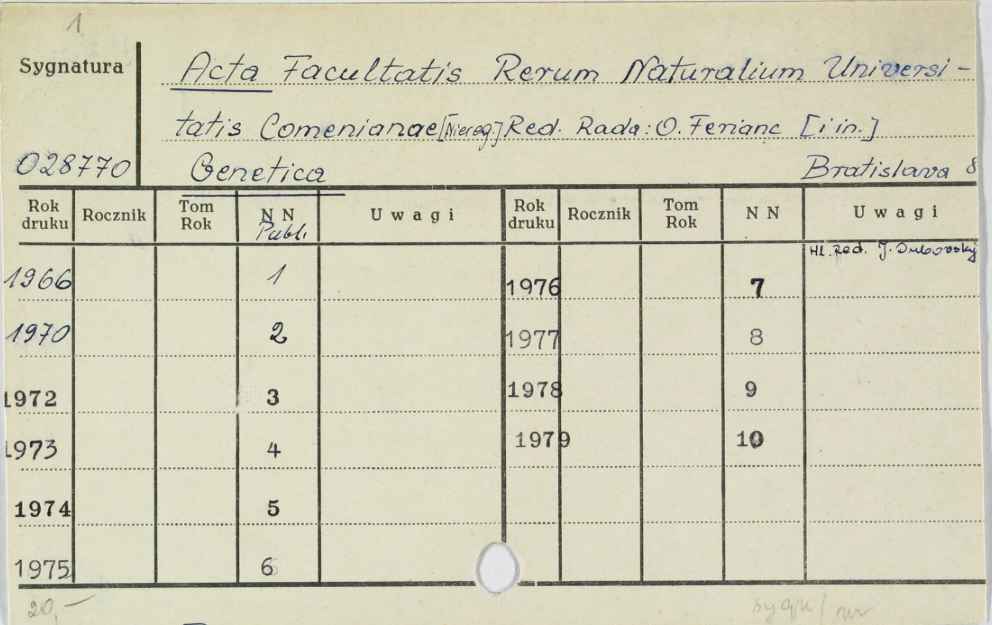 1
Sygnatura
Acta Facultatis Rerum Naturalium Universi-
tatis Comenianae [Niereg.] Red. Rada: O. Ferianc [i in.]
028770 Genetica Bratislava 8
Rok druku Rocznik Tom Rok NN Publ. Uwagi Rok druku Rocznik Tom Rok NN Uwagi
Hl. Red. J. Dubovský
1966 1 1976 7
1970 2 1977 8
1972 3 1978 9
1973 4 1979 10
1974 5
1975 6
20,-